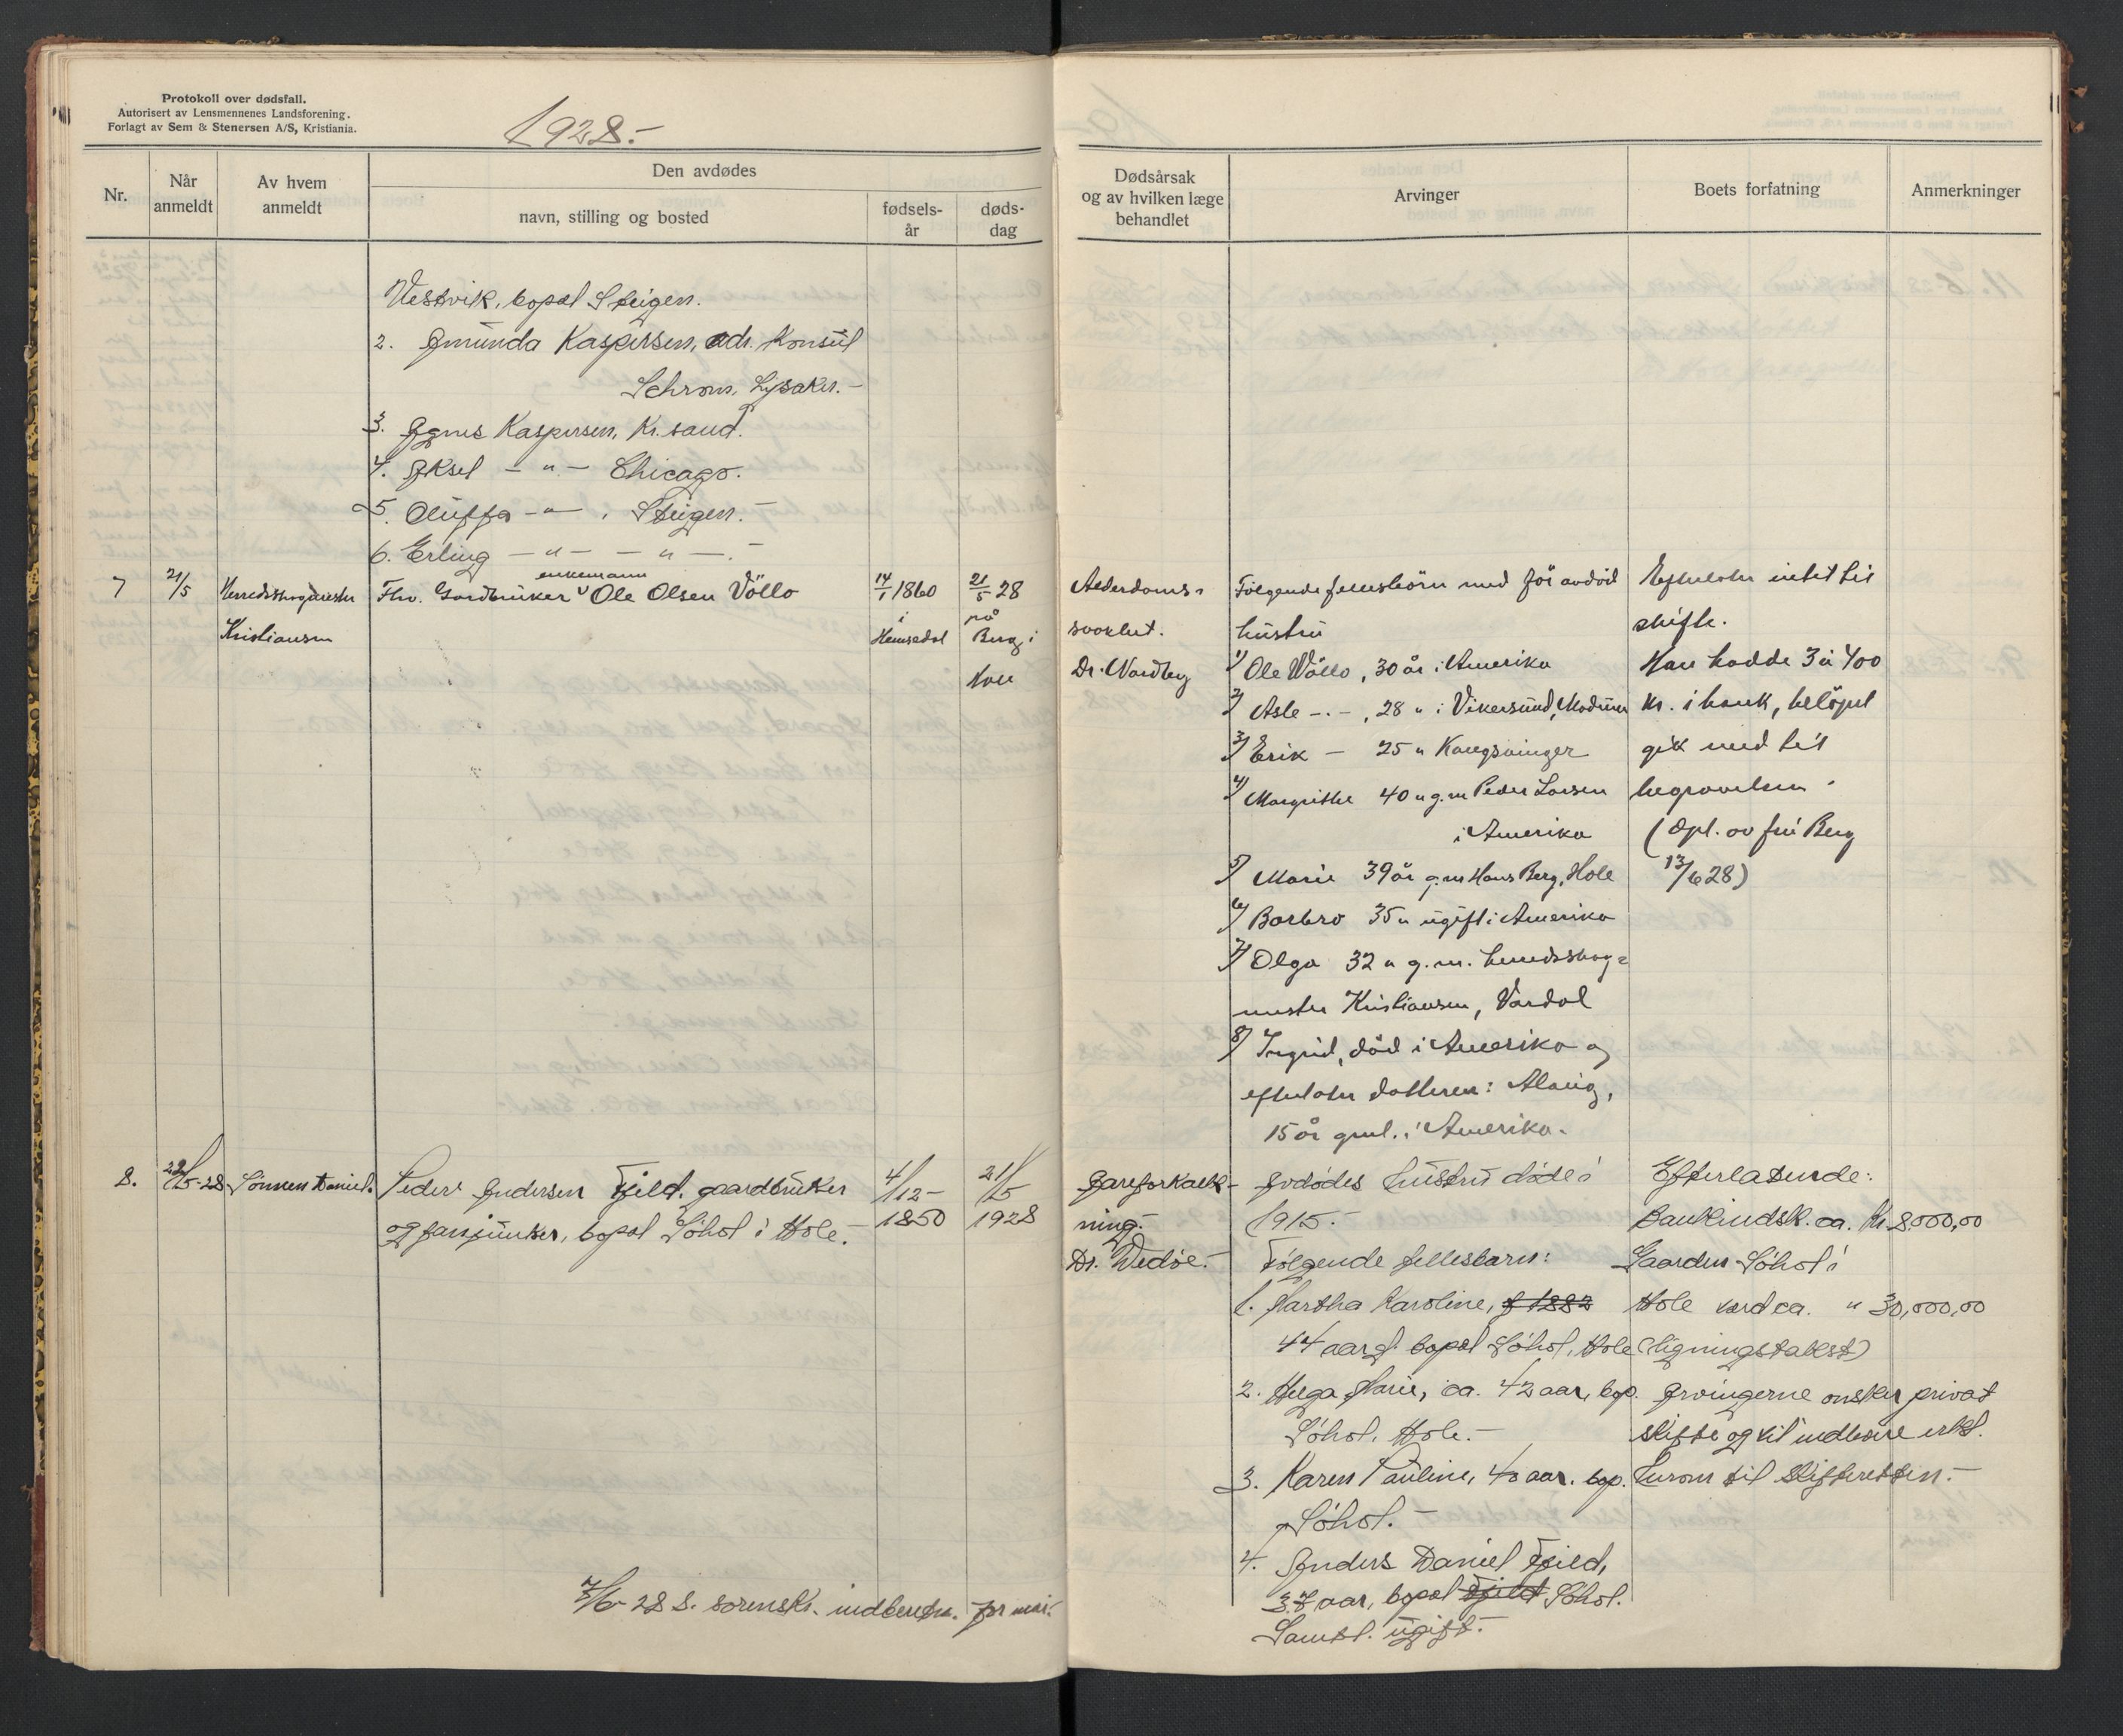 Protokoll over dødsfall.
Autorisert av Lensmennenes Landsforening.
Forlagt av Sem & Stenersen A/S, Kristiania.
1928.-
Nr.
Når anmeldt
Av hvem anmeldt
Den avdødes
navn, stilling og bosted
fødsels-år
døds-dag
Vestvik, bopæl Steigen.
2. Amunda Kaspersen, adr. Konsul
Schrom, Lysaker.-
3. Agnes Kaspersen, Kr.sand.
4. Aksel - " - Chicago.
5. Oluffa - " - , Steigen.-
6. Erling - " - - " -.-
enkemann
7 21/5 Herredsskogmester Fhv. Gardbruker Ole Olsen Völlo 14/1 1860 21/5 28
Kristiansen i Hemsedal på Berg i
Hole
8. 22/5-28 Sönnen Daniel. Peder Andersen Fjeld, gaardbruker 4/12- 21/5
og fanejunker, bopæl Söhol i Hole.- 1850 1928
7/6-28 S. sorenskr. indberetn. for mai.
Dødsårsak
og av hvilken læge
behandlet
Arvinger
Boets forfatning
Anmerkninger
Alderdoms-
svakhet.
Dr. Nordby
Følgende fellesbörn med för avdöd
hustru
1) Ole Völlo, 30 år i Amerika
2) Asle -.-, 28 " i Vikersund, Modum
3) Erik - 25 " Kongsvinger
4) Margrithe 40 " g.m. Peder Larsen
i Amerika
5) Marie 39 år g.m. Hans Berg, Hole
6) Barbro 35 " ugift i Amerika
7) Olga 32 " g.m. herredsskog-
mester Kristiansen, Vardal
8) Ingrid, död i Amerika og
efterlater datteren:
15 år gml. i Amerika.
Efterlater intet til
skifte.
Han hadde 3 à 400
kr. i bank, belöpet
gikk med til
begravelsen.
(Opl. av fru Berg
13/6 28)
Aareforkalk-
ning.-
Dr. Wedöe.-
Avdödes hustru döde i
1915.-
Følgende fellesbarn:
1. Martha Karoline, f 1882
44 aar g. bopæl Söhol, Hole
2. Helga Marie, ca. 42 aar, bop.
Söhol, Hole.-
3. Karen Pauline, 40 aar. bop.
Söhol.-
4. Anders Daniel Fjeld,
37 aar, bopæl Fjeld Söhol.
Samtl. ugift.-
Efterlatende:
Bankindsk. ca. Kr. 8.000,00
Gaarden Söhol i
Hole værd ca. " 30,000,00
(ligningstakst)
Arvingerne ønsker privat
skifte og vil indlevere erkl.
herom til skifteretten.-